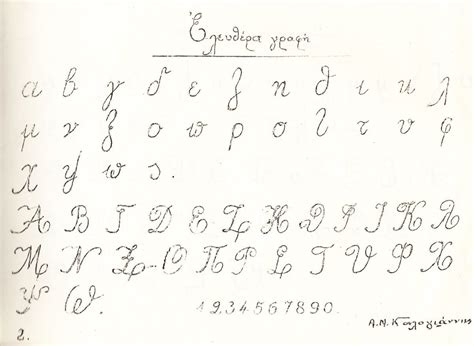 Ἐλευθέρα γραφή
α β γ δ ε ζ η θ ι κ λ
μ ν ξ ο π ρ σ τ τ υ φ
χ ψ ω ς .
Α Β Γ Δ Ε Ζ Η Θ Ι Ι Κ Λ
Μ Ν Ξ - Ο Π Ρ Σ Τ Υ Φ Χ
Ψ Ω. 1234567890.
2. Α.Ν. Καλογιάννης